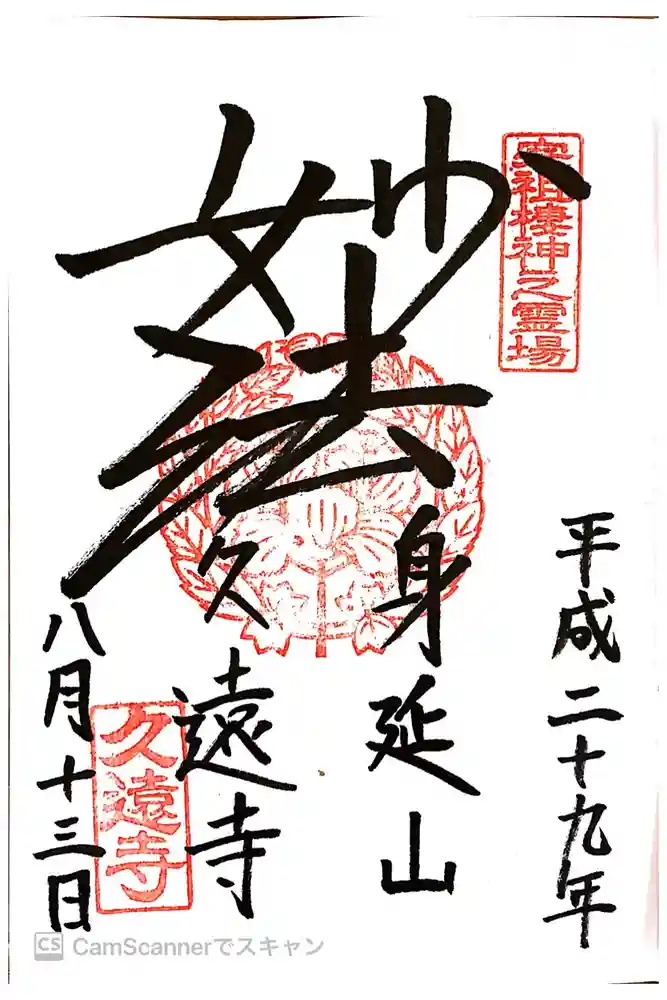 宗祖棲神之霊場
平成二十九年
妙法
身延山
久遠寺
久遠寺
八月十三日
CS CamScannerでスキャン